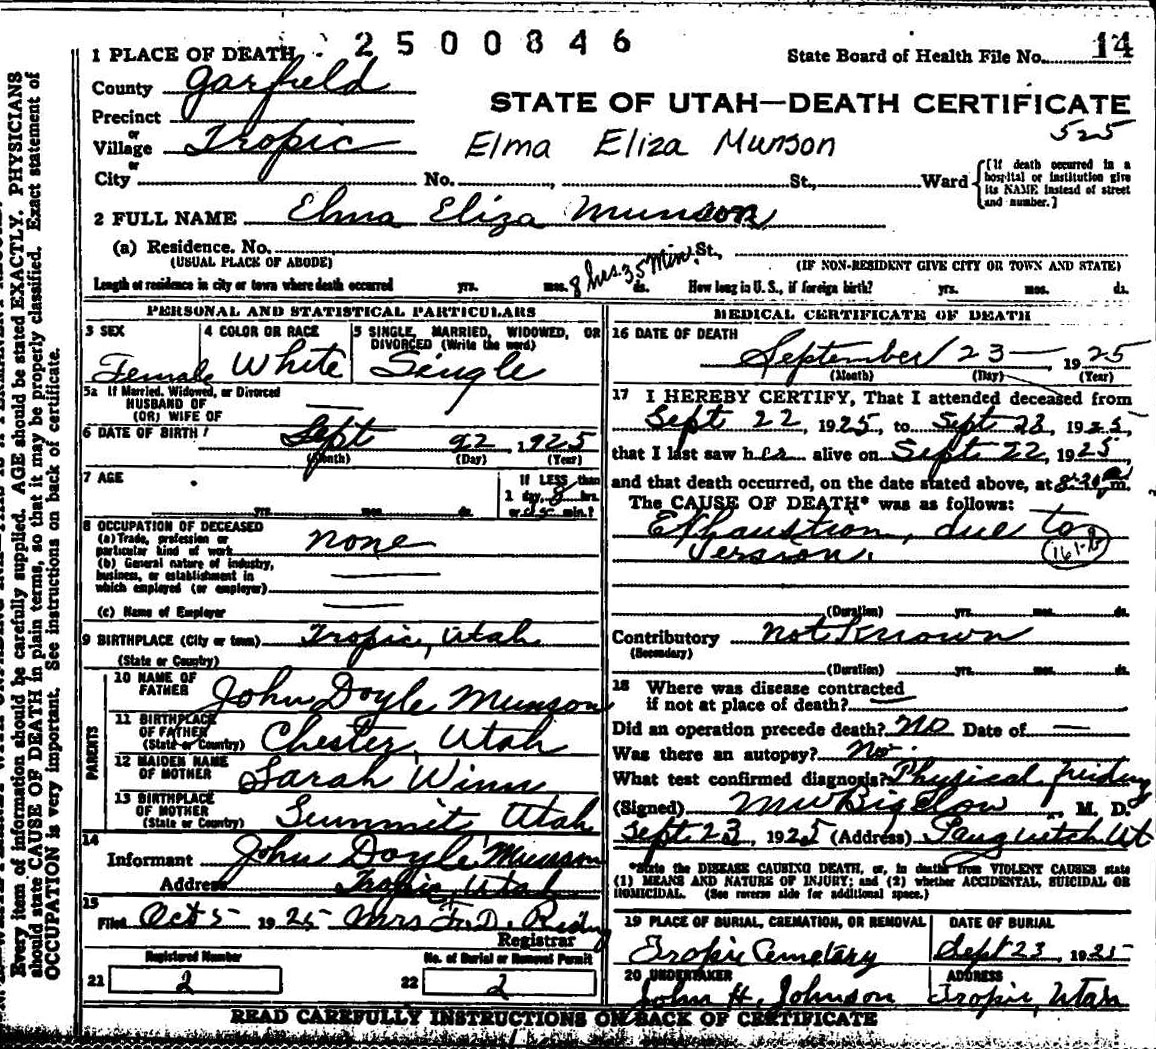 1 PLACE OF DEATH 2500846 State Board of Health File No. 14
County Garfield
STATE OF UTAH—DEATH CERTIFICATE
Precinct
or
Village Tropic Elma Eliza Munson 525
or
City No. , St., Ward [If death occurred in a hospital or institution give its NAME instead of street and number.]
2 FULL NAME Elma Eliza Munson
(a) Residence. No. St.,
(USUAL PLACE OF ABODE) (IF NON-RESIDENT GIVE CITY OR TOWN AND STATE)
Length of residence in city or town where death occurred yrs. mos. 8 hrs. 35 Min. ds. How long in U. S., if foreign birth? yrs. mos. ds.
PERSONAL AND STATISTICAL PARTICULARS
3 SEX 4 COLOR OR RACE 5 SINGLE, MARRIED, WIDOWED, OR DIVORCED (Write the word)
Female White Single
5a If Married, Widowed, or Divorced
HUSBAND OF
(OR) WIFE OF
6 DATE OF BIRTH Sept 22, 1925
(Month) (Day) (Year)
7 AGE If LESS than
1 day, 8 hrs.
yrs. mos. ds. or 35 min.?
8 OCCUPATION OF DECEASED
(a) Trade, profession or
particular kind of work none
(b) General nature of industry,
business, or establishment in
which employed (or employer)
(c) Name of Employer
9 BIRTHPLACE (City or town) Tropic, Utah
(State or Country)
PARENTS
10 NAME OF
FATHER John Doyle Munson
11 BIRTHPLACE
OF FATHER
(State or Country) Chester, Utah
12 MAIDEN NAME
OF MOTHER Sarah Winn
13 BIRTHPLACE
OF MOTHER
(State or Country) Summit, Utah
14
Informant John Doyle Munson
Address Tropic, Utah
15
Filed Oct 5 1925 Mrs F. D.
Registrar
Registered Number No. of Burial or Removal Permit
21 2 22 2
MEDICAL CERTIFICATE OF DEATH
16 DATE OF DEATH
September 23— 1925
(Month) (Day) (Year)
17 I HEREBY CERTIFY, That I attended deceased from
Sept 22, 1925, to Sept 23, 1925,
that I last saw her alive on Sept 22, 1925,
and that death occurred, on the date stated above, at m.
The CAUSE OF DEATH* was as follows:
Exhaustion, due to
161-b
(Duration) yrs. mos. ds.
Contributory not Known
(Secondary)
(Duration) yrs. mos. ds.
18 Where was disease contracted
if not at place of death?
Did an operation precede death? No Date of —
Was there an autopsy? No.
What test confirmed diagnosis? Physical
(Signed) MW Bigelow, M. D.
Sept 23, 1925 (Address) Panguitch Ut
*State the DISEASE CAUSING DEATH, or, in deaths from VIOLENT CAUSES state
(1) MEANS AND NATURE OF INJURY; and (2) whether ACCIDENTAL, SUICIDAL OR
HOMICIDAL. (See reverse side for additional space.)
19 PLACE OF BURIAL, CREMATION, OR REMOVAL DATE OF BURIAL
Tropic Cemetary Sept 23, 1925
20 UNDERTAKER ADDRESS
John H. Johnson Tropic, Utah
READ CAREFULLY INSTRUCTIONS ON BACK OF CERTIFICATE
Every item of information should be carefully supplied. AGE should be stated EXACTLY. PHYSICIANS
should state CAUSE OF DEATH in plain terms, so that it may be properly classified. Exact statement of
OCCUPATION is very important. See instructions on back of certificate.